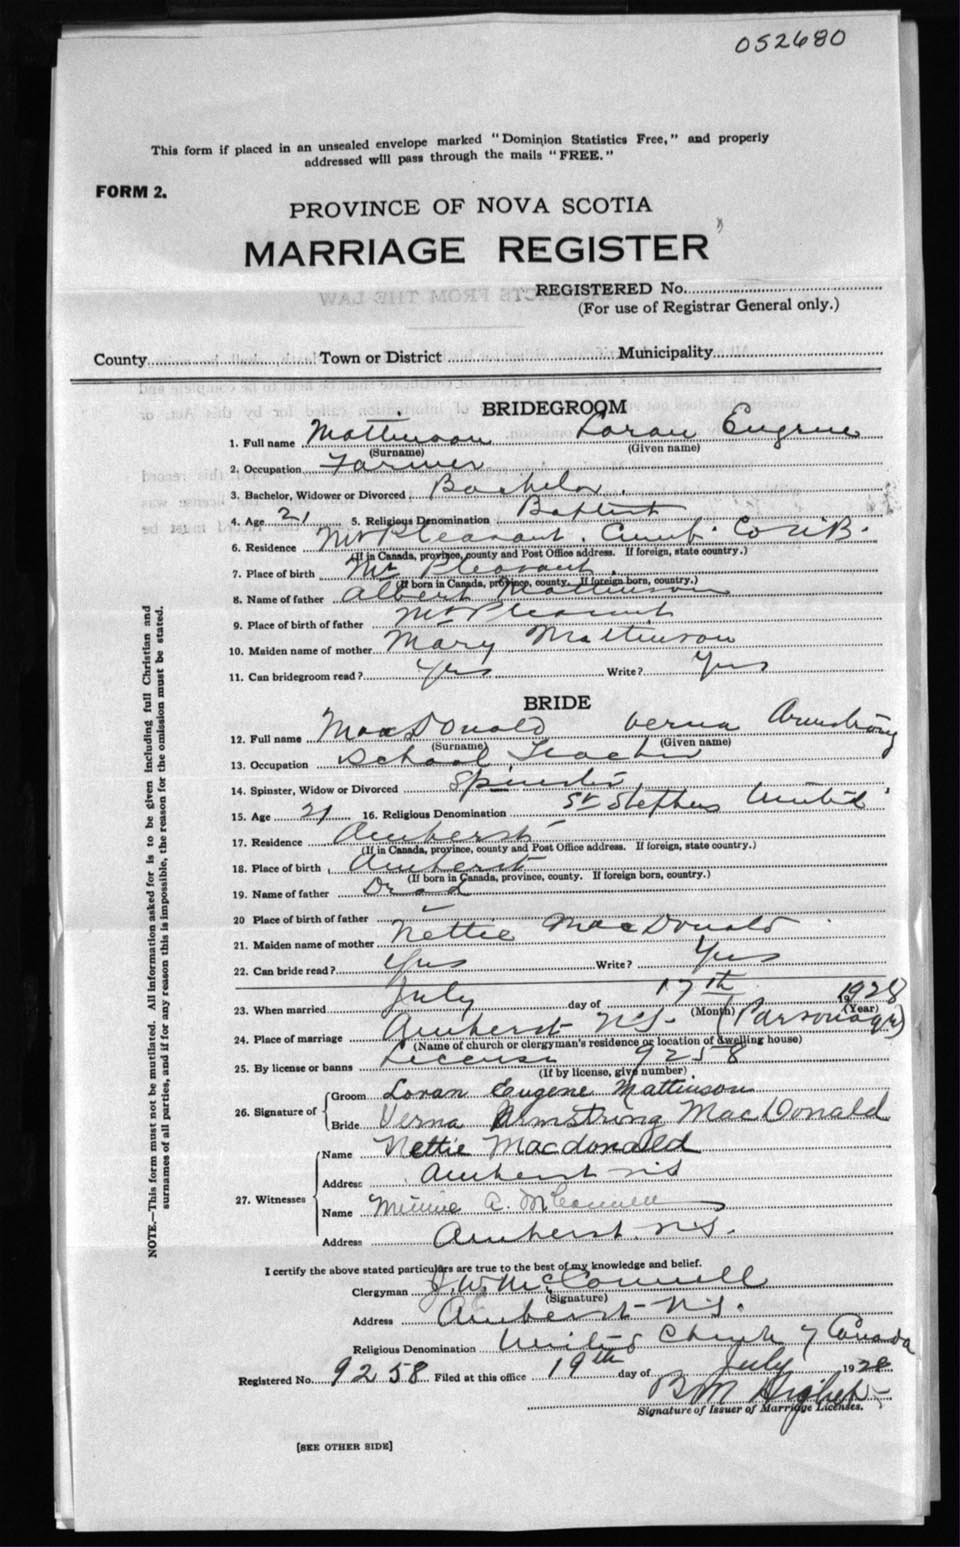 052680
This form if placed in an unsealed envelope marked "Dominion Statistics Free," and properly
addressed will pass through the mails "FREE."
FORM 2.
PROVINCE OF NOVA SCOTIA
MARRIAGE REGISTER
REGISTERED No.
(For use of Registrar General only.)
County Town or District Municipality
BRIDEGROOM
1. Full name Mattinson Loran Eugene
(Surname) (Given name)
2. Occupation Farmer
3. Bachelor, Widower or Divorced Bachelor
4. Age 21 5. Religious Denomination Baptist
6. Residence Mt Pleasant. Cumb. Co N.S.
(If in Canada, province, county and Post Office address. If foreign, state country.)
7. Place of birth Mt Pleasant
(If born in Canada, province, county. If foreign born, country.)
8. Name of father Albert Mattinson
9. Place of birth of father Mt Pleasant
10. Maiden name of mother Mary Mattinson
11. Can bridegroom read? Yes Write? Yes
BRIDE
12. Full name MacDonald Verna Armstrong
(Surname) (Given name)
13. Occupation School Teacher
14. Spinster, Widow or Divorced Spinster
15. Age 21 16. Religious Denomination St Stephens United
17. Residence Amherst
(If in Canada, province, county and Post Office address. If foreign, state country.)
18. Place of birth Amherst
(If born in Canada, province, county. If foreign born, country.)
19. Name of father
20 Place of birth of father
21. Maiden name of mother Nettie MacDonald
22. Can bride read? Yes Write? Yes
23. When married July day of 17th 1928
(Month) (Year)
24. Place of marriage Amherst N.S. (Parsonage)
(Name of church or clergyman's residence or location of dwelling house)
25. By license or banns License 9258
(If by license, give number)
26. Signature of Groom Loran Eugene Mattinson
Bride Verna Armstrong MacDonald
27. Witnesses Name Nettie Macdonald
Address Amherst N.S
Name Minnie A. McConnell
Address Amherst N.S.
I certify the above stated particulars are true to the best of my knowledge and belief.
Clergyman J. W. McConnell
(Signature)
Address Amherst N.S.
Religious Denomination United Church of Canada
Registered No. 9258 Filed at this office 19th day of July 1928
Signature of Issuer of Marriage Licenses.
[SEE OTHER SIDE]
NOTE.—This form must not be mutilated. All information asked for is to be given including full Christian and
surnames of all parties, and if for any reason this is impossible, the reason for the omission must be stated.